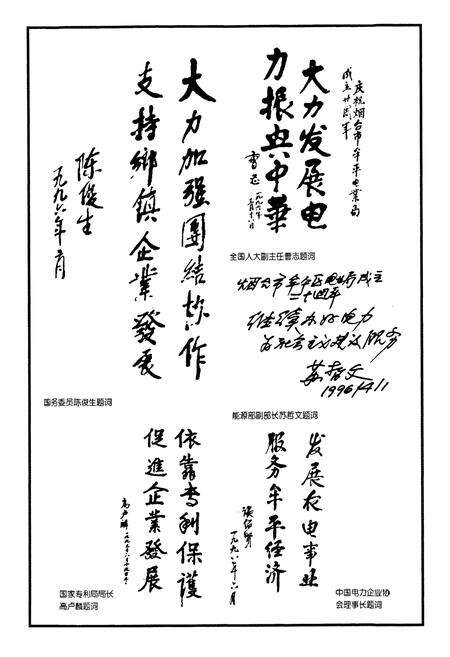 庆祝烟台市牟平电業局
成立廿四周年
大力发展电
力振兴中華
曹志
一九九六年
全国人大副主任曹志题词
大力加强團结协作
支持鄉镇企業發展
陈俊生
一九九六年
国务委员陈俊生题词
烟台市牟平区电业局成立
二十四年
继续办好电力
为社会主义建设服务
苏哲文
1996/4/11
能源部副部长苏哲文题词
依靠专利保護
促進企業發展
高卢麟
国家专利局局长
高卢麟题词
发展农电事业
服务牟平经济
张绍贤
一九九六年六月
中国电力企业协
会理事长题词